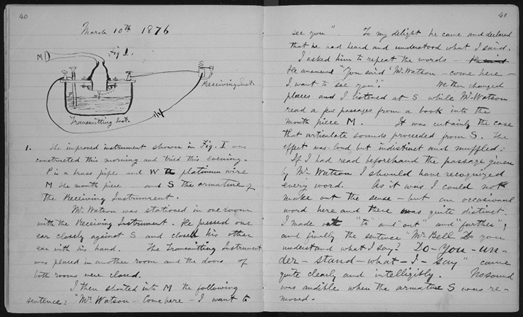 40
March 10th 1876
Fig 1.
M
Receiving Inst.
Transmitting Inst.
1. The improved instrument shown in Fig. I was
constructed this morning and tried this evening.
P is a brass pipe and W the platinum wire
M the mouth piece and S the armature of
the Receiving Instrument.
Mr. Watson was stationed in one room
with the Receiving Instrument. He pressed one
ear closely against S and closed his other
ear with his hand. The Transmitting Instrument
was placed in another room and the doors of
both rooms were closed.
I then shouted into M the following
sentence: "Mr. Watson - Come here - I want to
41
see you". To my delight he came and declared
that he had heard and understood what I said.
I asked him to repeat the words -
He answered "You said 'Mr. Watson - come here -
I want to see you'." We then changed
places and I listened at S while Mr. Watson
read a few passages from a book into the
mouth piece M. It was certainly the case
that articulate sounds proceeded from S. The
effect was loud but indistinct and muffled.
If I had read beforehand the passage given
by Mr. Watson I should have recognized
every word. As it was I could not
make out the sense - but an occasional
word here and there was quite distinct.
I made out "to" and "out" and "further";
and finally the sentence "Mr. Bell Do you
understand what I say? Do-You-un-
der-stand-what-I-say" came
quite clearly and intelligibly. No sound
was audible when the armature S was re-
moved.